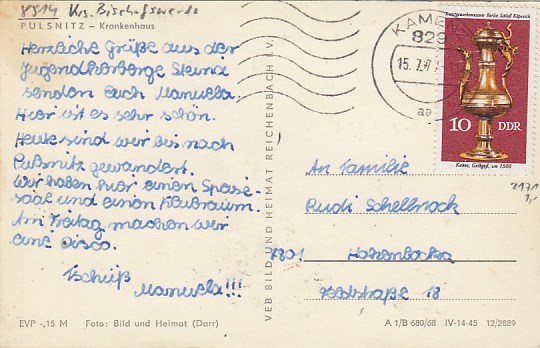 8514 Krs. Bischofswerda
PULSNITZ – Krankenhaus
Herzliche Grüße aus der
Jugendherberge Steina
senden euch Manuela.
Hier ist es sehr schön.
Heute sind wir bis nach
Pulsnitz gewandert.
Wir haben hier einen Speise-
saal und einen Klubraum.
Am Freitag machen wir
eine Disco.
Tschüß
Manuela!!!
EVP -,15 M Foto: Bild und Heimat (Darr)
VEB BILD UND HEIMAT REICHENBACH i. V.
KAMENZ
829
15.7.
aa
Kunstgewerbemuseum Berlin Schloß Köpenick
10 DDR
Kanne, Gelbguß, um 1500
An Familie
Rudi Schellnock
7801 Hohenbocka
18
A 1/B 680/68 IV-14-45 12/2889